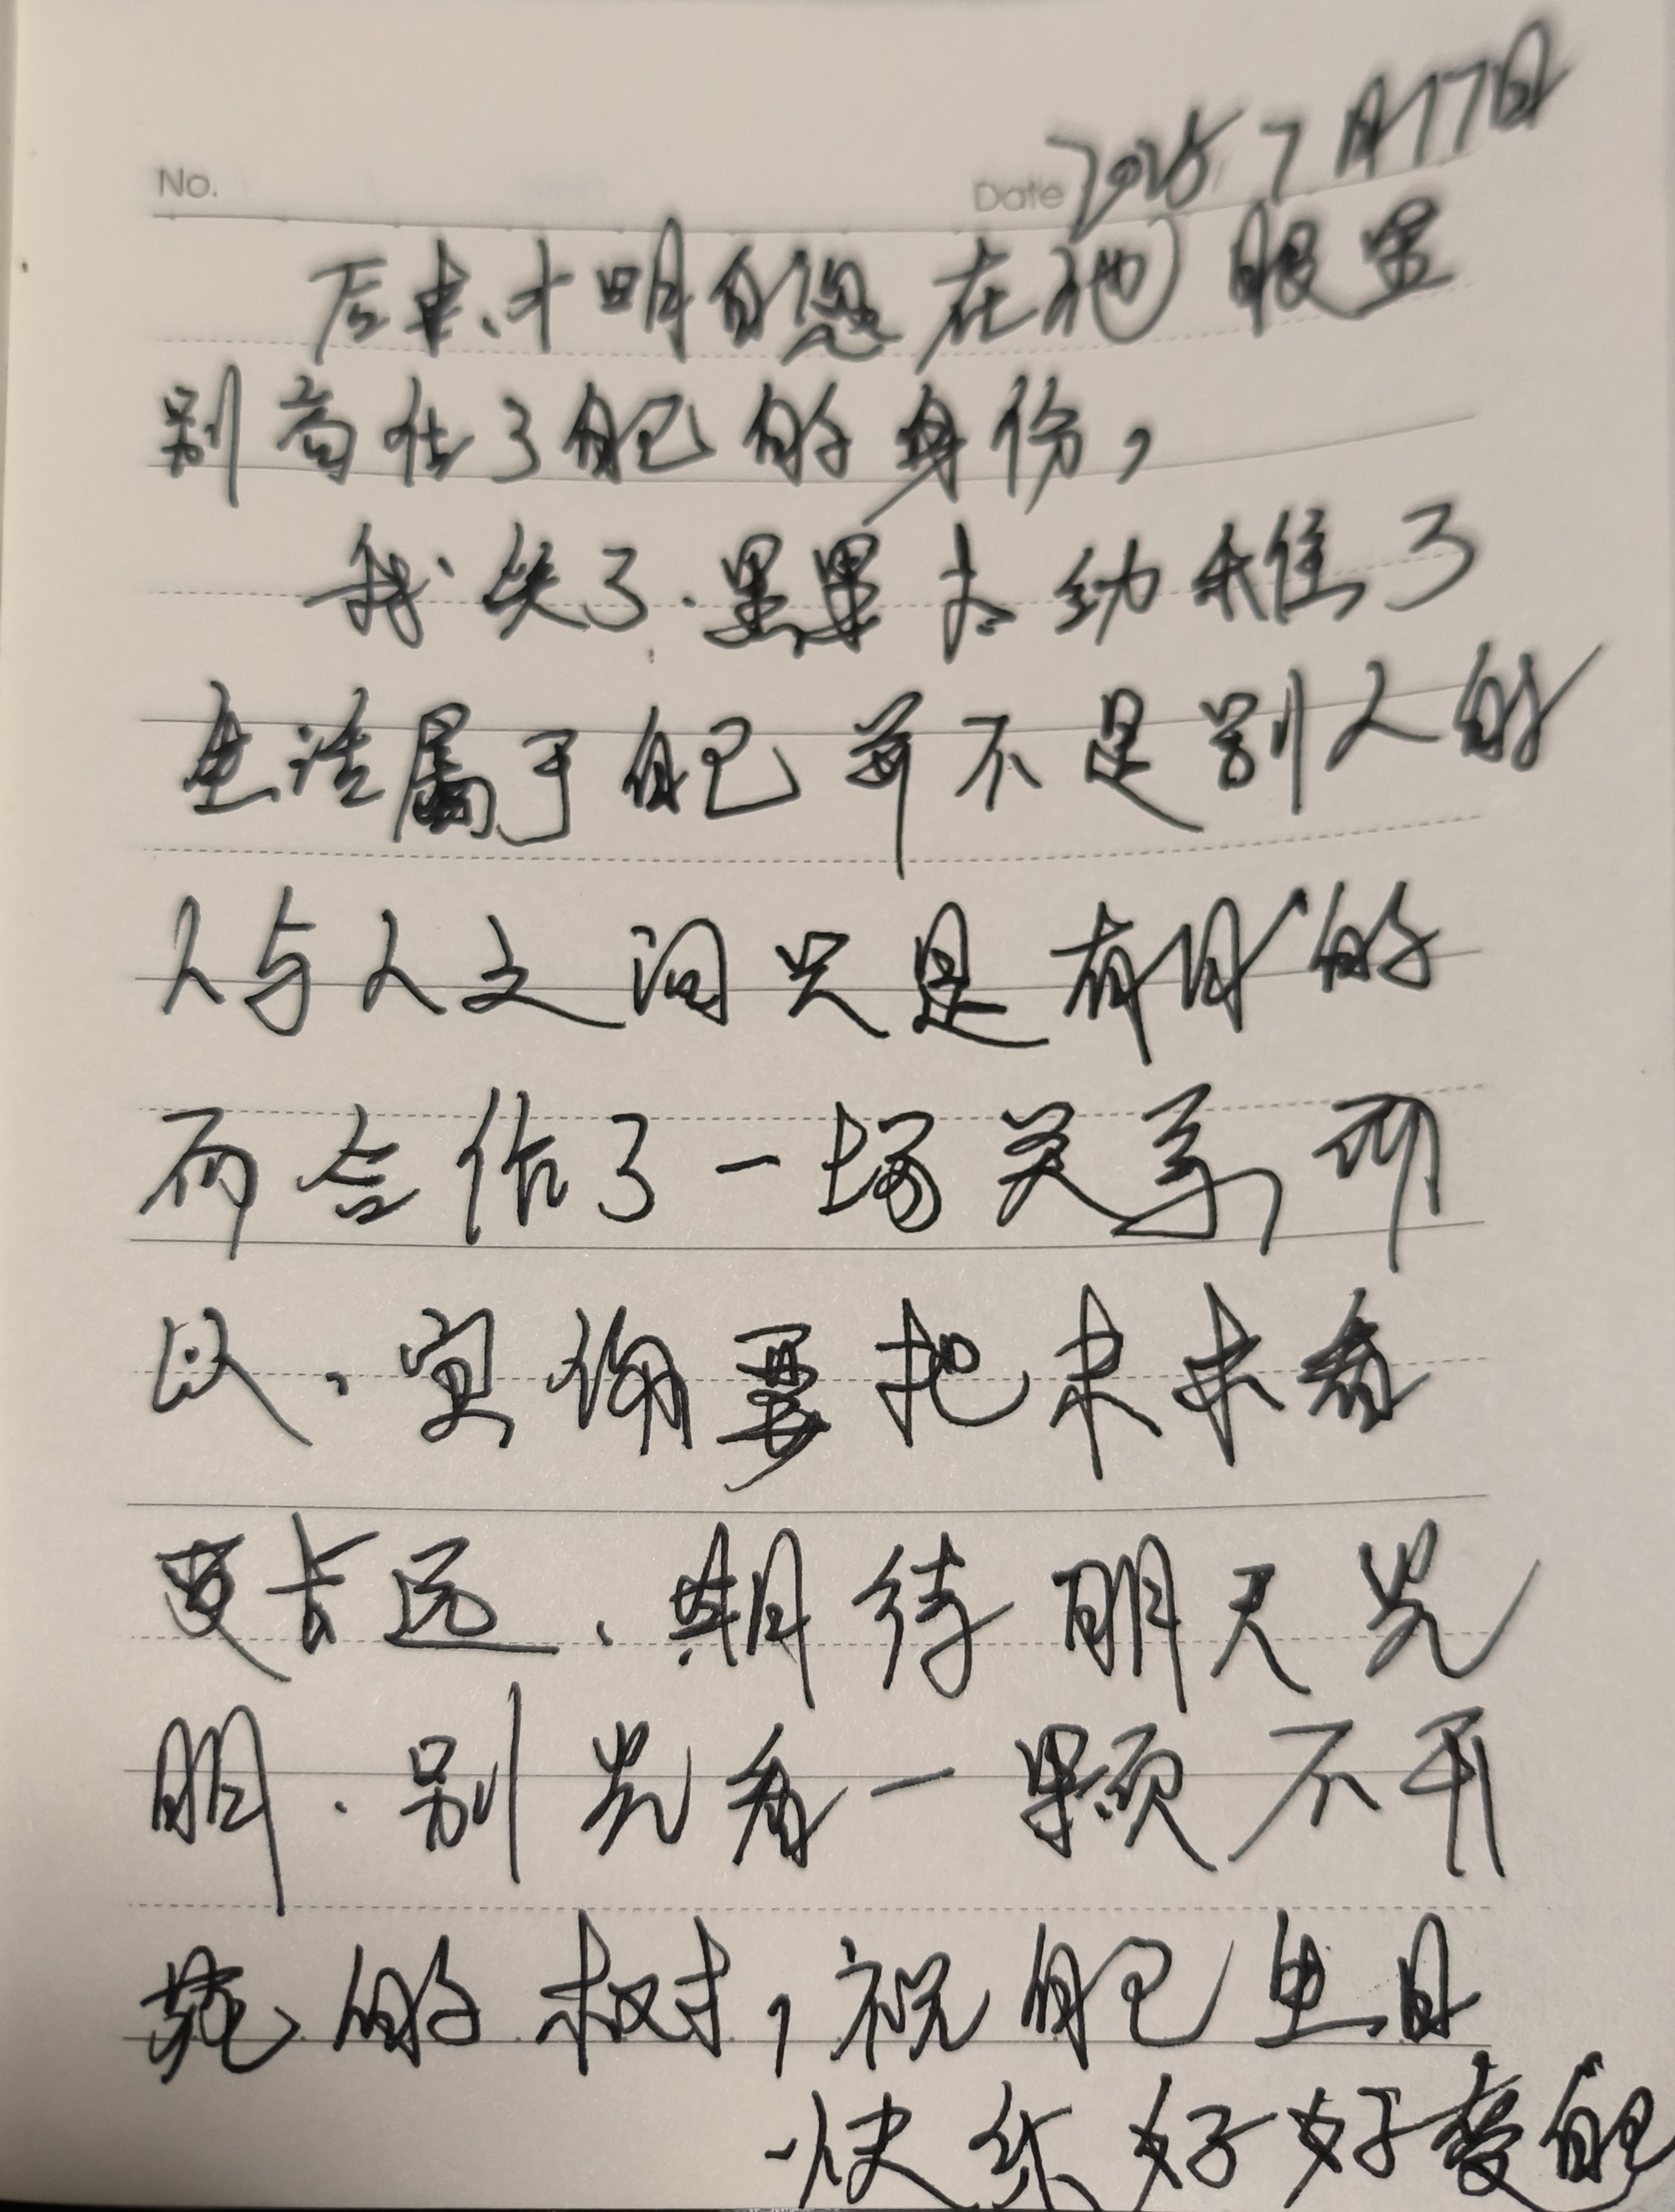 No.
Date 2025 7月17日
后来、才明白您在他眼里
别高估了自己的身份，
我笑了.果果太幼稚了
生活属于自己并不是别人的
人与人之间只是有目的
而合作了一场关系,所
以、宁可要把未来看
更长远、期待明天光
明.别光看一颗不开
花的树，祝自己生日
快乐好好爱自己